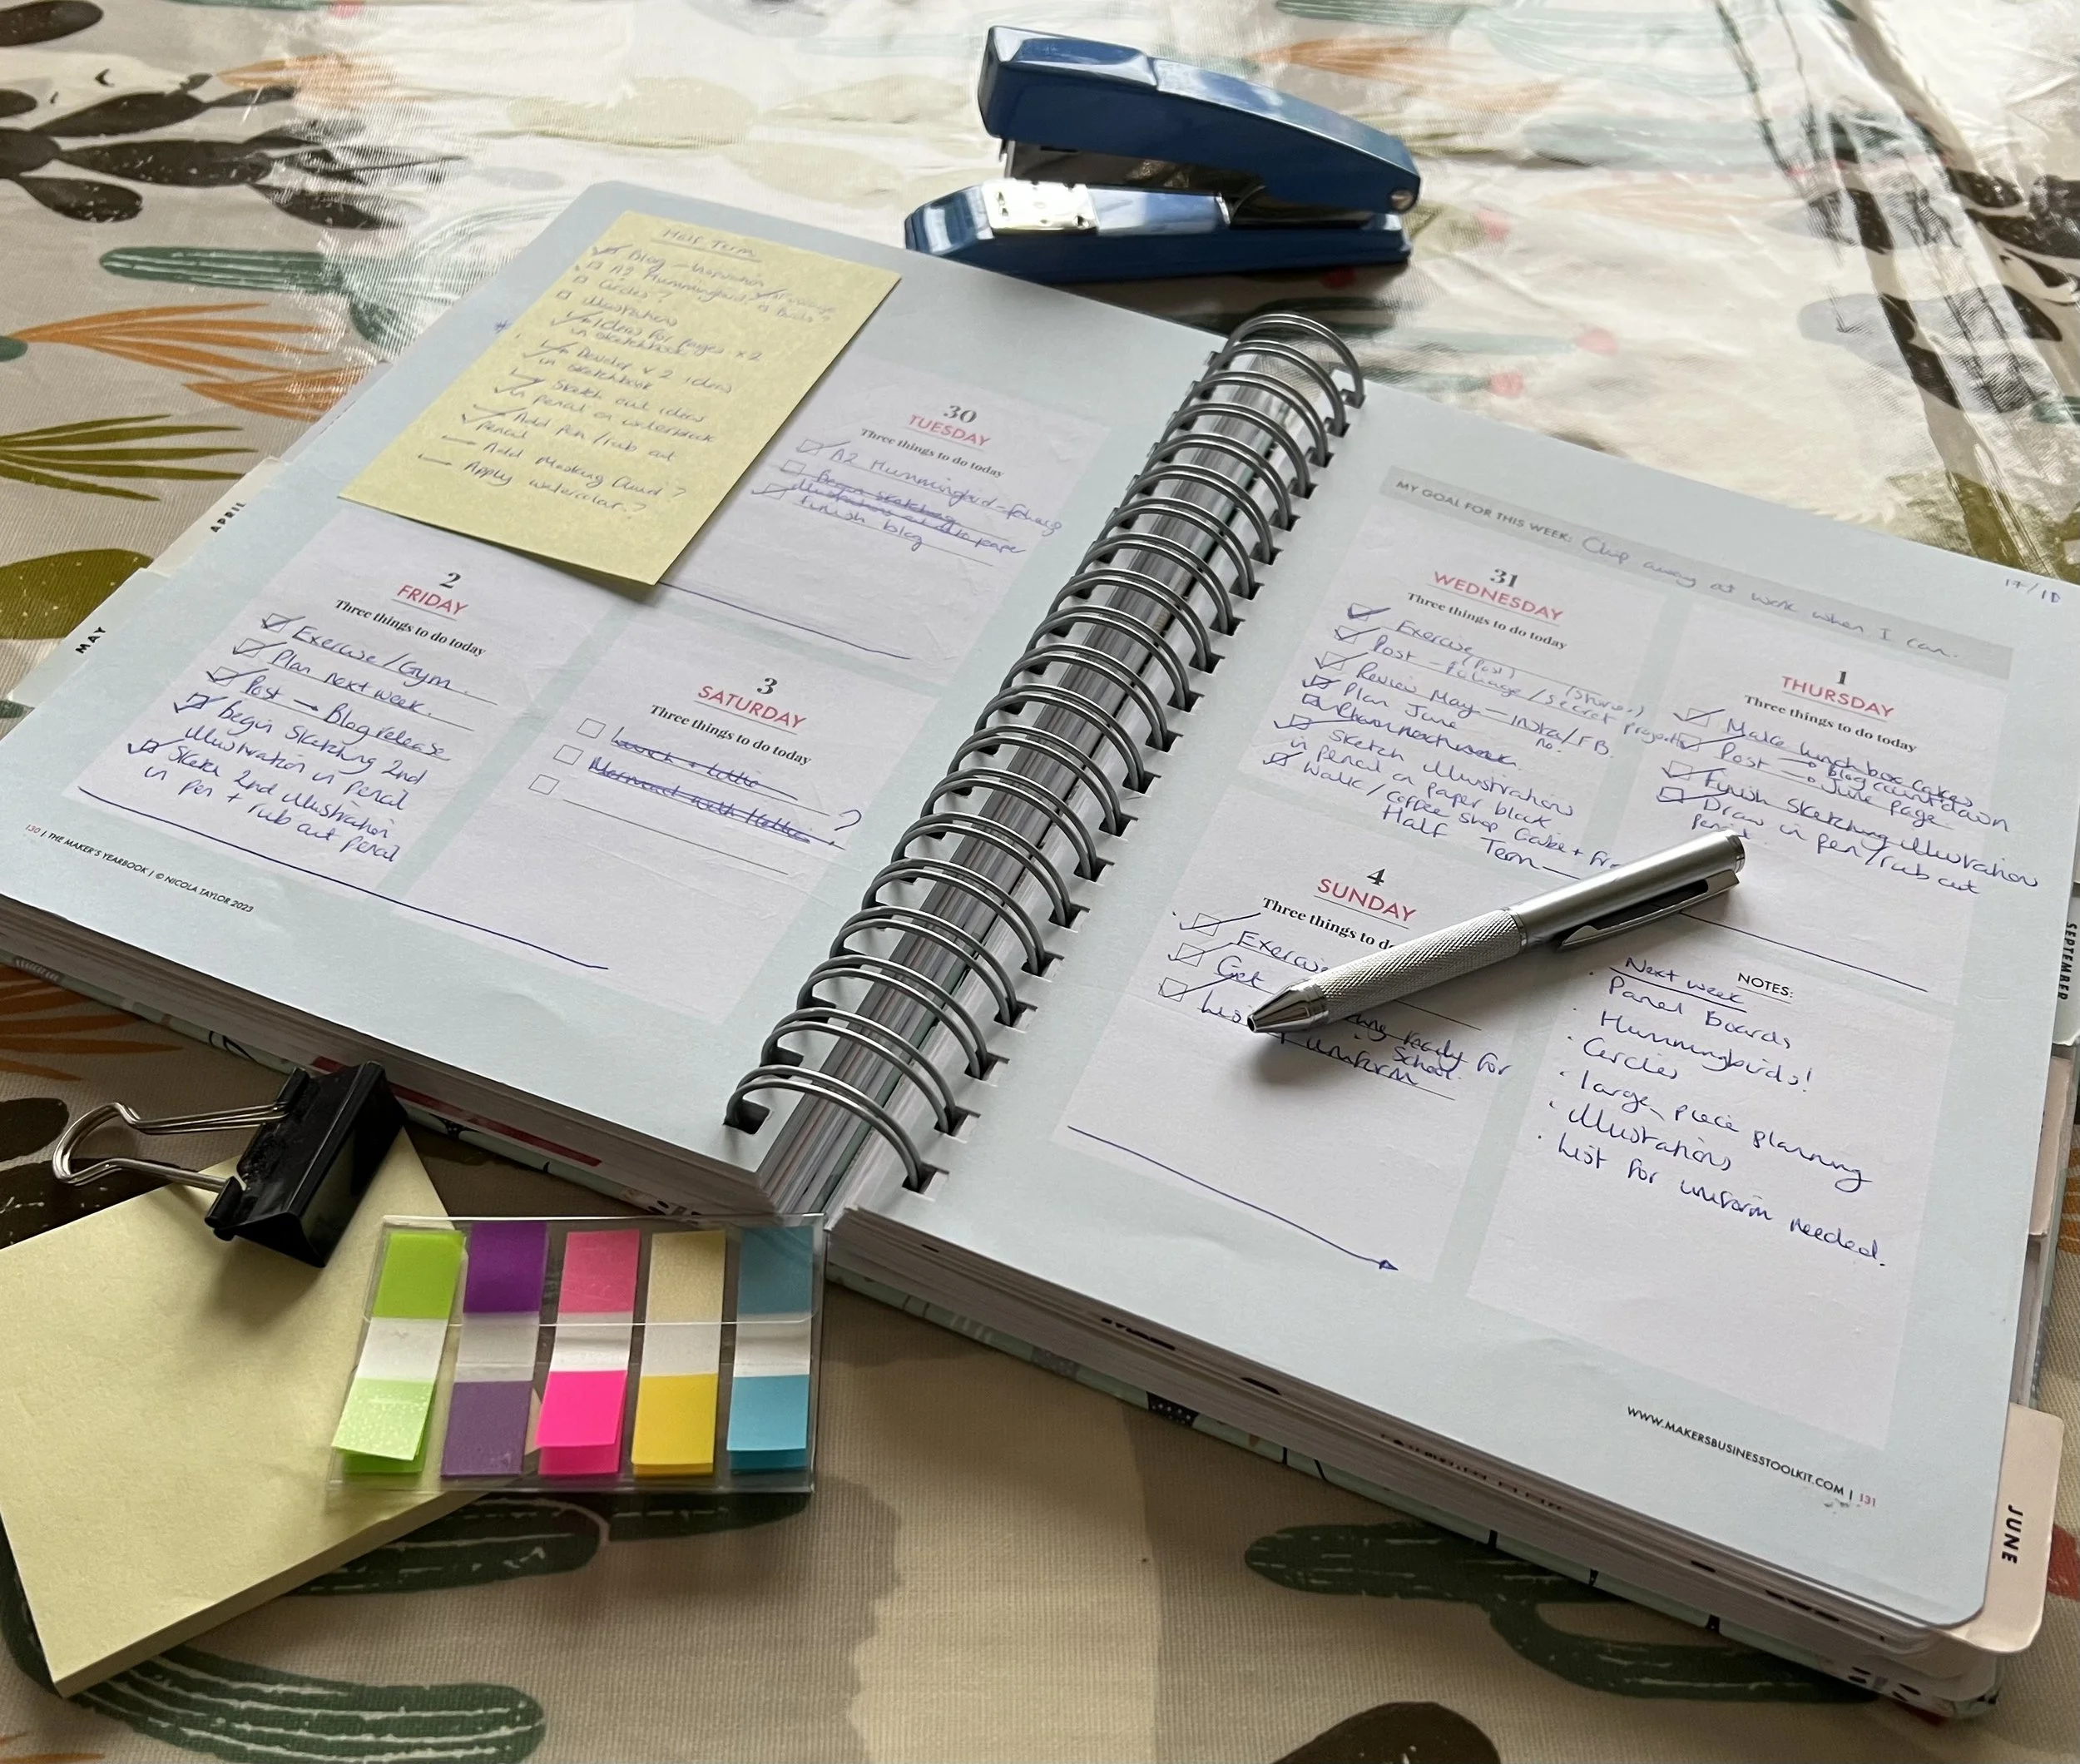 Half Term
Blog
A2 Hummingbird
Circles?
Illustrations
Ideas for pages x 2
in sketchbook
Develop x 2 ideas
in sketchbook
Sketch out ideas
in pencil on
Add pen / rub out
pencil
Add Masking fluid?
Apply watercolour?
30
TUESDAY
Three things to do today
A2 Hummingbird
Begin sketching
illustrations paper
finish blog
2
FRIDAY
Three things to do today
Exercise / Gym
Plan next week.
Post → Blog release
Begin sketching 2nd
illustration in pencil
Sketch 2nd illustration
in pen + rub out pencil
3
SATURDAY
Three things to do today
Lunch
Mermaid with ?
130 | THE MAKER'S YEARBOOK | © NICOLA TAYLOR 2023
APRIL
MAY
MY GOAL FOR THIS WEEK: Chip away at work when I can.
17/18
31
WEDNESDAY
Three things to do today
Exercise
(Post) (stories)
Post - foliage / secret project
Review May - Insta/FB
Plan June no.
Plan next week.
Sketch illustrations
in pencil on paper block
Walk / coffee shop
Half Term
1
THURSDAY
Three things to do today
Make lunchbox cakes
Post → Blog countdown
→ June page
Finish sketching illustration
Draw in pen / rub out
pencil
4
SUNDAY
Three things to do
Exercise
Get ready for
School.
uniform
NOTES:
Next week
Panel Boards
Hummingbirds!
Circles
large piece planning
illustrations
List for uniform needed.
WWW.MAKERSBUSINESSTOOLKIT.COM | 131
SEPTEMBER
JUNE